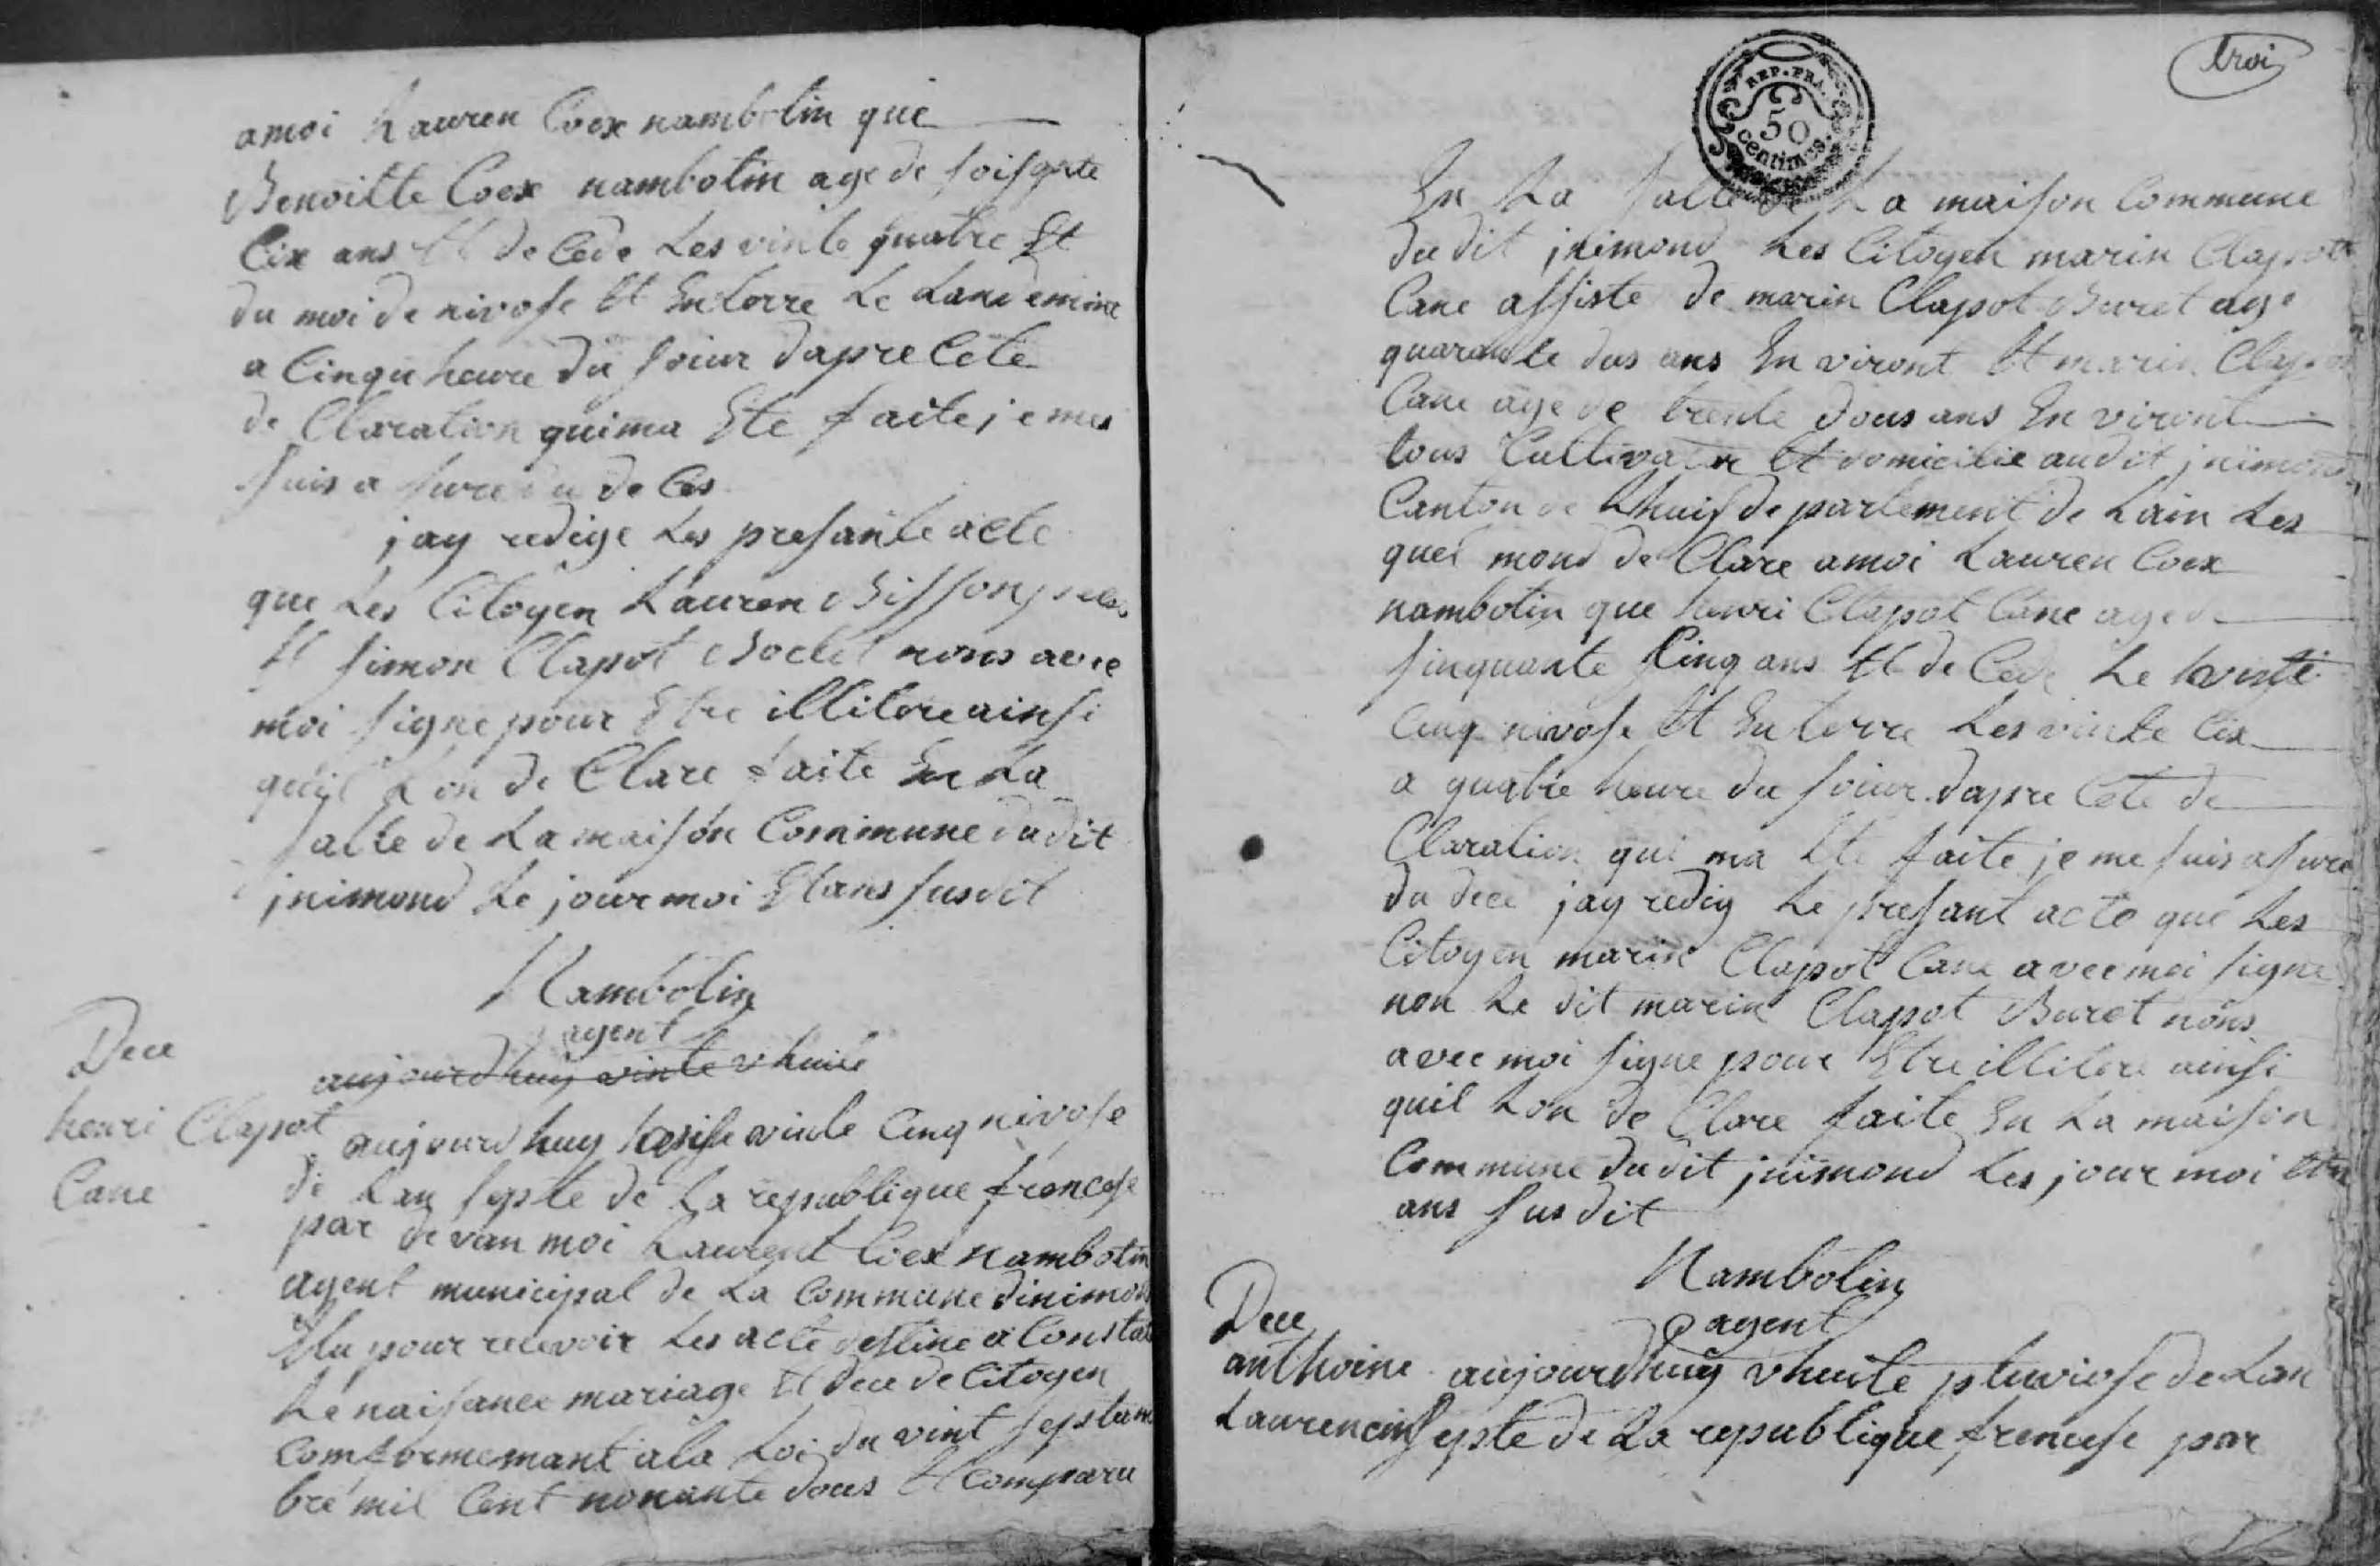 amoi Lauren Coex nambotin que
Benoitte Coex nambotin age de soisgnte
Cix ans Et de Cede Les vinte quatre Et
du moi de nivose Et Enterre Le Landemine
a Cinqu heure du soiur dapre Cete
de Claration quima Ete faite je mes
suis a sure du de Ces
jay redige Les presante acte
que Les Citoyen Lauren Bisson
Et simon Clapot Bochet nons avec
moi signe pour Etre illitere ainsi
quil Lon de Clare faite En La
salle de La maison Commune du dit
jnimond Le jour moi Et ans susdit
Nambotin
agent
Dece
henri Clapot
Cane
aujourdhuy vinte vhuite
aujourdhuy vinte Cinq nivose
de Lan septe de La republique francese
par de van moi Laurent Coex nambotin
agent municipal de La Commune dinimon
Elu pour recevoir Les acte destine a Constate
Le naisance mariage Et dece de Citoyen
Comformemant a la Loi du vint septem
bre mil Cent nonante dous Et Comparu
troi
REP. FRA.
50
centimes.
En La salle de La maison Commune
du dit jnimond Les Citoyen marin Clapot
Cane assiste de marin Clapot Buret age
quarante dus ans En viront Et marin Clapot
Cane age de trente dous ans En viront
tous Cultivateur Et domicilie audit jnimond
Canton de Lhuis departement de Lain Les
quel mond de Clare amoi Lauren Coex
nambotin que henri Clapot Cane age de
sinquante Cinq ans Et de Cede Le vinte
Cinq nivose Et Enterre Les vinte Cix
a quatre heure du soiur dapre Cete de
Claration qui ma Ete faite je me suis a sure
du dece jay redig Le presant acte que Les
Citoyen marin Clapot Cane avec moi signe
non Le dit marin Clapot Buret nons
avec moi signe pour Etre illitere ainsi
quil Lon de Clare faite En La maison
Commune du dit jnimond Les jour moi Et
ans susdit
Nambotin
agent
Dece
anthoine
Laurencin
aujourdhuy vhuite pluviose de Lan
septe de La republique francese par